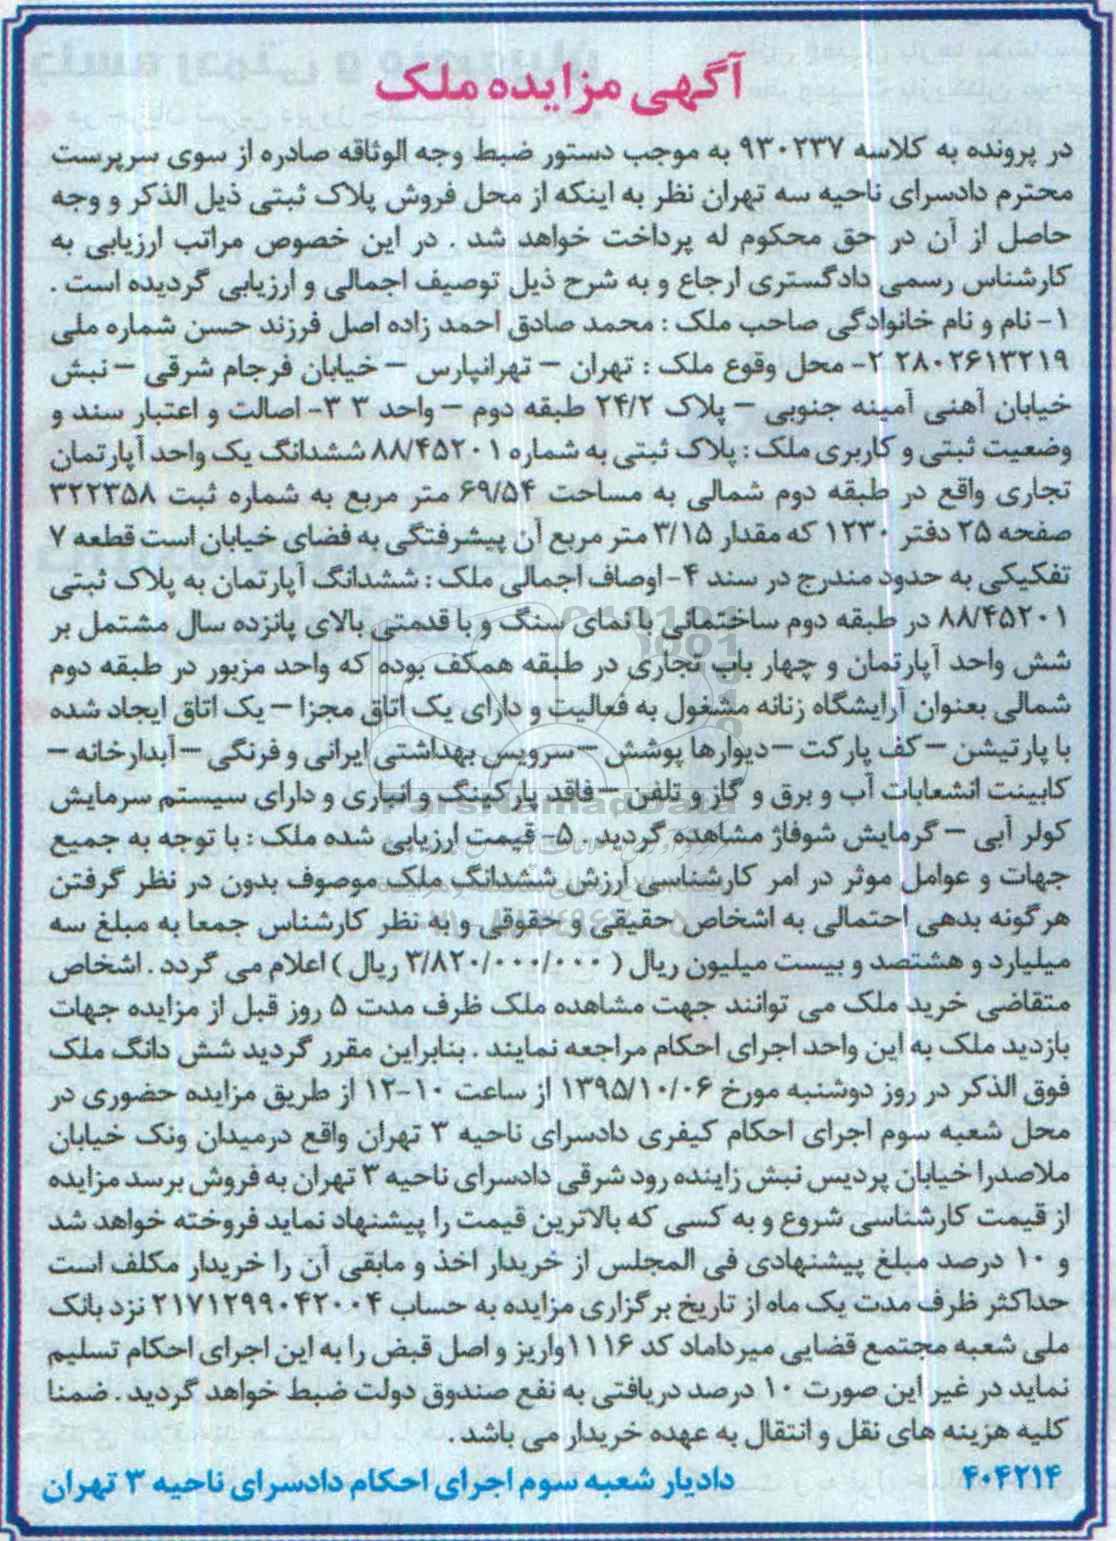 آگهی مزایده ملک
در پرونده به کلاسه ۹۳۰۲۳۷ به موجب دستور ضبط وجه الوثاقه صادره از سوی سرپرست
محترم دادسرای ناحیه سه تهران نظر به اینکه از محل فروش پلاک ثبتی ذیل الذکر و وجه
حاصل از آن در حق محکوم له پرداخت خواهد شد . در این خصوص مراتب ارزیابی به
کارشناس رسمی دادگستری ارجاع و به شرح ذیل توصیف اجمالی و ارزیابی گردیده است .
۱- نام و نام خانوادگی صاحب ملک : محمد صادق احمد زاده اصل فرزند حسن شماره ملی
۲۸۰۲۶۱۳۲۱۹ ۲- محل وقوع ملک : تهران – تهرانپارس – خیابان فرجام شرقی – نبش
خیابان آهنی آمینه جنوبی – پلاک ۲۴/۲ طبقه دوم – واحد ۳ ۳- اصالت و اعتبار سند و
وضعیت ثبتی و کاربری ملک : پلاک ثبتی به شماره ۸۸/۴۵۲۰۱ ششدانگ یک واحد آپارتمان
تجاری واقع در طبقه دوم شمالی به مساحت ۶۹/۵۴ متر مربع به شماره ثبت ۳۲۲۳۵۸
صفحه ۲۵ دفتر ۱۲۳۰ که مقدار ۳/۱۵ متر مربع آن پیشرفتگی به فضای خیابان است قطعه ۷
تفکیکی به حدود مندرج در سند ۴- اوصاف اجمالی ملک : ششدانگ آپارتمان به پلاک ثبتی
۸۸/۴۵۲۰۱ در طبقه دوم ساختمانی با نمای سنگ و با قدمتی بالای پانزده سال مشتمل بر
شش واحد آپارتمان و چهار باب تجاری در طبقه همکف بوده که واحد مزبور در طبقه دوم
شمالی بعنوان آرایشگاه زنانه مشغول به فعالیت و دارای یک اتاق مجزا – یک اتاق ایجاد شده
با پارتیشن – کف پارکت – دیوارها پوشش – سرویس بهداشتی ایرانی و فرنگی – آبدارخانه –
کابینت انشعابات آب و برق و گاز و تلفن – فاقد پارکینگ و انباری و دارای سیستم سرمایش
کولر آبی – گرمایش شوفاژ مشاهده گردید . ۵- قیمت ارزیابی شده ملک : با توجه به جمیع
جهات و عوامل موثر در امر کارشناسی ارزش ششدانگ ملک موصوف بدون در نظر گرفتن
هرگونه بدهی احتمالی به اشخاص حقیقی و حقوقی و به نظر کارشناس جمعا به مبلغ سه
میلیارد و هشتصد و بیست میلیون ریال ( ۳/۸۲۰/۰۰۰/۰۰۰ ریال ) اعلام می گردد . اشخاص
متقاضی خرید ملک می توانند جهت مشاهده ملک ظرف مدت ۵ روز قبل از مزایده جهات
بازدید ملک به این واحد اجرای احکام مراجعه نمایند . بنابراین مقرر گردید شش دانگ ملک
فوق الذکر در روز دوشنبه مورخ ۱۳۹۵/۱۰/۰۶ از ساعت ۱۰-۱۲ از طریق مزایده حضوری در
محل شعبه سوم اجرای احکام کیفری دادسرای ناحیه ۳ تهران واقع درمیدان ونک خیابان
ملاصدرا خیابان پردیس نبش زاینده رود شرقی دادسرای ناحیه ۳ تهران به فروش برسد مزایده
از قیمت کارشناسی شروع و به کسی که بالاترین قیمت را پیشنهاد نماید فروخته خواهد شد
و ۱۰ درصد مبلغ پیشنهادی فی المجلس از خریدار اخذ و مابقی آن را خریدار مکلف است
حداکثر ظرف مدت یک ماه از تاریخ برگزاری مزایده به حساب ۲۱۷۱۲۹۹۰۴۲۰۰۴ نزد بانک
ملی شعبه مجتمع قضایی میرداماد کد ۱۱۱۶ واریز و اصل قبض را به این اجرای احکام تسلیم
نماید در غیر این صورت ۱۰ درصد دریافتی به نفع صندوق دولت ضبط خواهد گردید . ضمنا
کلیه هزینه های نقل و انتقال به عهده خریدار می باشد .
۴۰۴۲۱۴ دادیار شعبه سوم اجرای احکام دادسرای ناحیه ۳ تهران